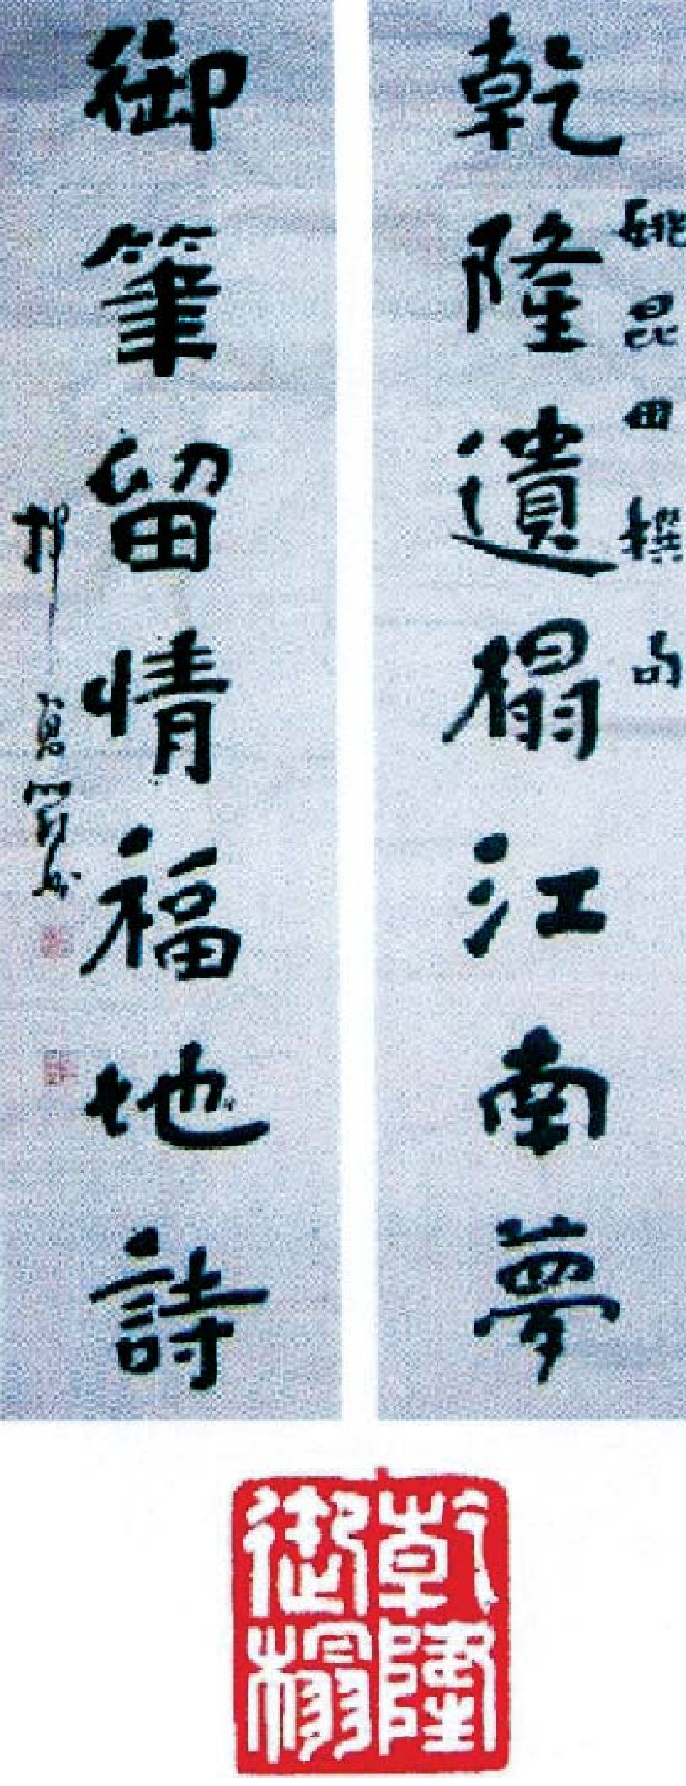 姚昆田撰句
乾隆遺榻江南夢
御筆留情福地詩
乾隆
御榻